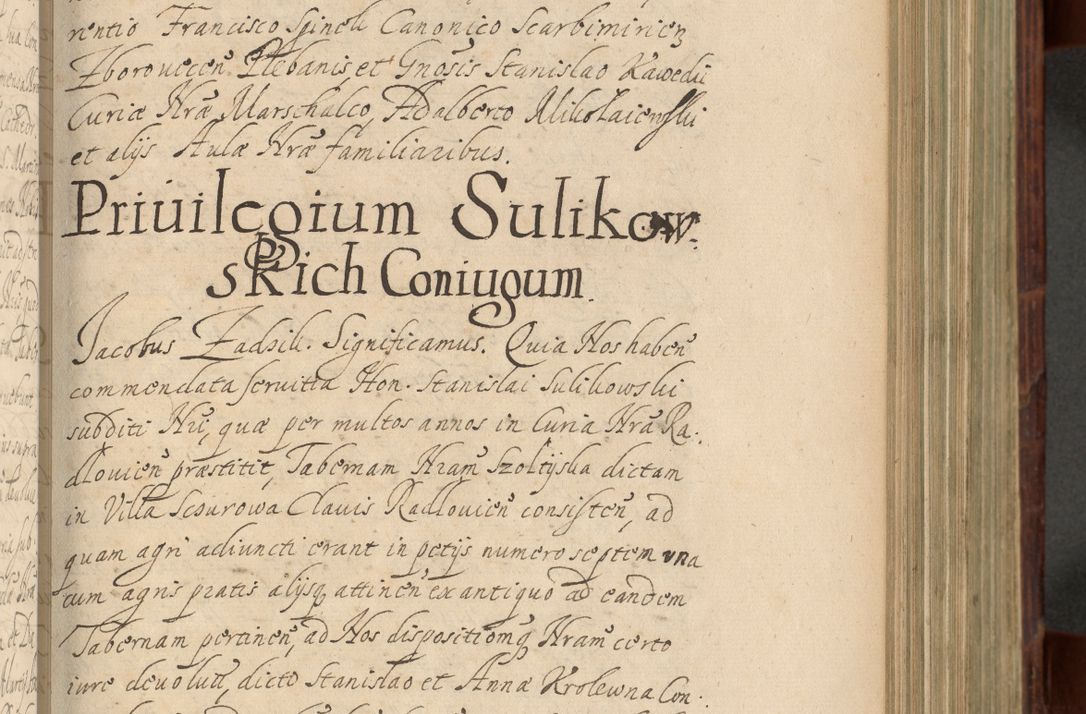 rentio Francisco Spinek Canonico Scarbimirień
Zborovecen̄ Plebanis et Gnosis Stanislao Kawecki
Curiæ Nr̄æ Marschalco, Adalberto Mikołaiewski
et alijs Aulæ Nr̄æ familiaribus.
Priuilegium Sulikow-
skich Coniugum.
Jacobus Zadzik. Significamus. Quia Nos haben̄
commendata seruitia Hon. Stanislai Sulikowski
subditi Nr̄i, quæ per multos annos in Curia Nr̄a Ra-
dlouien̄ præstitit, Tabernam Nr̄am Szoltyska dictam
in Villa Sczurowa Clauis Radlouien̄ consisten̄, ad
quam agri adiuncti erant in petijs numero septem vna
cum agris pratis alijsq attinen̄ ex antiquo ad eandem
Tabernam pertinen̄, ad Nos dispositionemq Nr̄am certo
iure deuolut̄, dicto Stanislao et Annæ Krolewna Con-